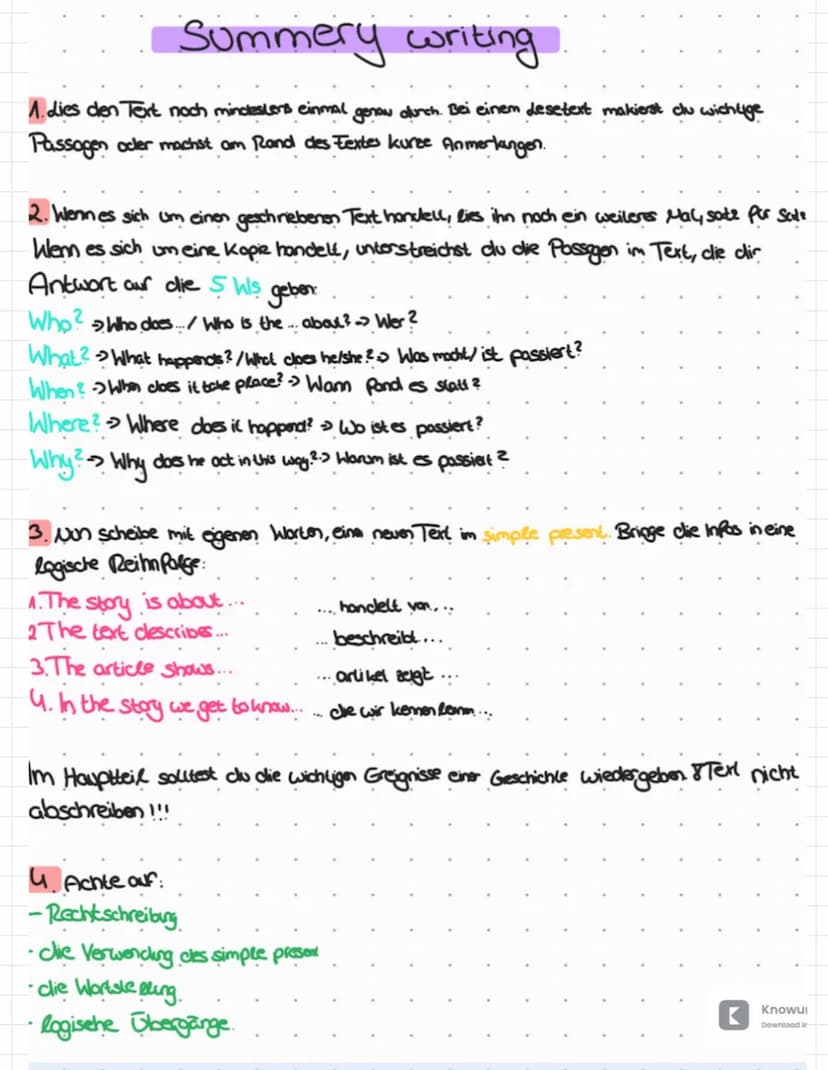 Summery writing
1. Lies den Text noch mindestens einmal genau durch. Bei einem Lesetext makierst du wichtige
Passagen oder machst am Rand des Textes kurze Anmerkungen.
2. Wenn es sich um einen geschriebenen Text handelt, lies ihn noch ein weiteres Mal, satz für Satz
Wenn es sich um eine Kopie handelt, unterstreichst du die Passagen im Text, die dir
Antwort auf die 5 Ws geben:
Who? → Who does.../ Who is the ... about? → Wer?
What? → What happends? / What does he/she? → Was macht/ ist passiert?
When? → When does it take place? → Wann fand es statt?
Where? → Where does it happend? → Wo ist es passiert?
Why? → Why does he act in this way? → Warum ist es passiert?
3. Nun scheibe mit eigenen Worten, eine neuen Text im simple present. Bringe die Infos in eine
logische Reihnfolge:
1. The story is about... ... handelt von...
2 The text describes... ... beschreibt...
3. The article shows... ... artikel zeigt ...
4. In the story we get to know... ... die wir kennen lernn ...
Im Hauptteil solltest du die wichtigen Ereignisse einer Geschichte wiedergeben & Text nicht
abschreiben!!!
4. Achte auf:
- Rechtschreibung
· die Verwendung des simple present
· die Wortstellung
· logische Übergänge.
Knowu
Download i